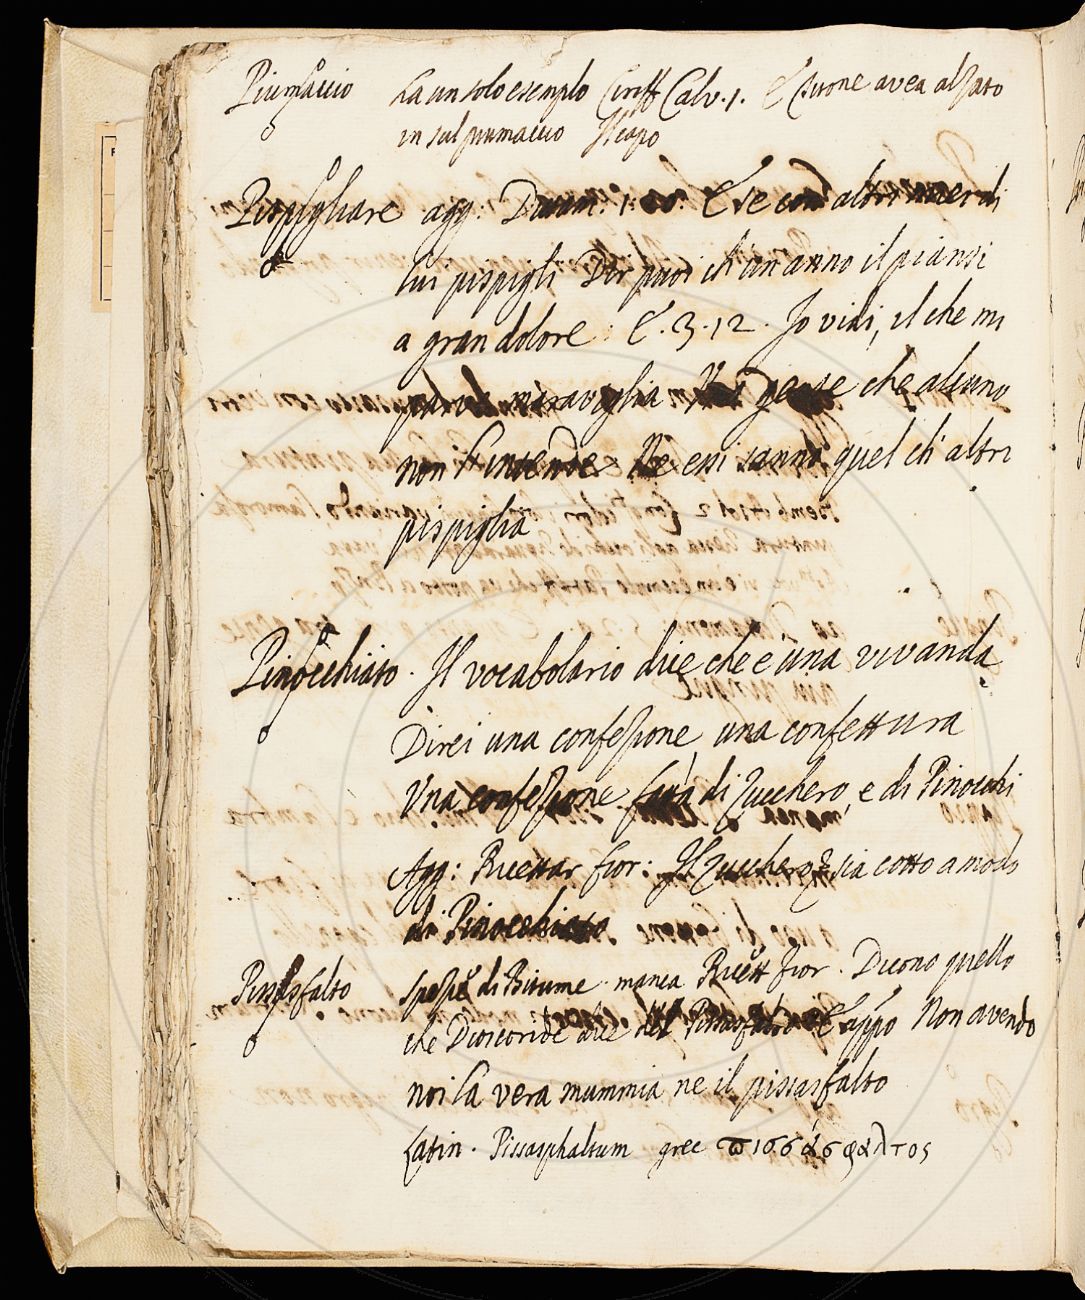 Piumaccio ha un solo esemplo Ciriff Calv. 1. E Ciione avea alzato
in sul piumaccio Il capo
Pispigliare agg: Dan. E se altri di
lui pispigli Dir puoi ch'un anno il piansi
a gran dolore: E. 3. 12. Io vidi, il che mi
parve maraviglia gente che alcuno
non l'intende Se essi sanno quel ch'altri
pispiglia
Pinocchiato. Il vocabolario dice che è una vivanda
Direi una confezione una confettura
Una confezione fatta di Zucchero, e di Pinocchi
Agg: Ricettar fior: Il Zucchero sia cotto a modo
di Pinocchiato
Pissasfalto Spezie di Bitume manca Ricett fior. Dicono quello
che Dioscoride dice del Pissasfalto E appo Non avendo
noi la vera mummia ne il pissasfalto
Latin. Pissasphaltum grec πισσάσφαλτος